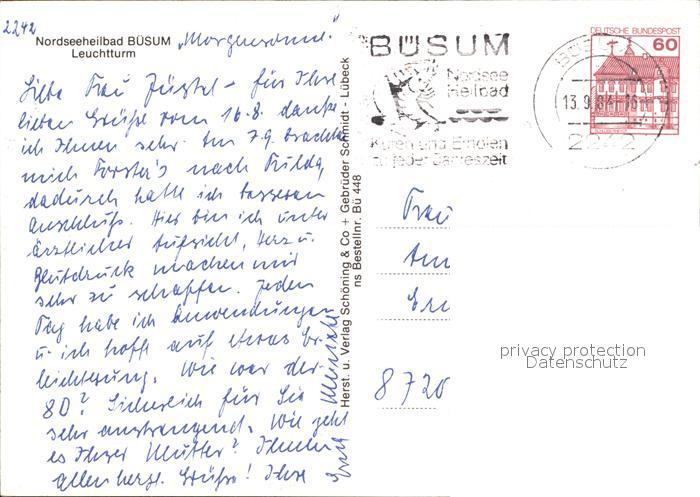 2242
Nordseeheilbad BÜSUM
Leuchtturm
"Morgensonne"
Liebe Frau für Ihre
lieben Grüße vom 16.8. danke
ich Ihnen sehr. Am 7.9. brachte
mich Forster's nach Fulda,
dadurch hatte ich besseren
Anschluß. Hier bin ich unter
ärztlicher Aufsicht, Herz u.
Blutdruck machen mir
sehr zu schaffen. Jeden
Tag habe ich Anwendungen
u. ich hoffe auf etwas Er-
leichterung. Wie war der
80? Sicherlich für Sie
sehr anstrengend. Wie geht
es Ihrer Mutter? Ihnen
allen herzl. Grüße! Ihre
Herst. u. Verlag Schöning & Co + Gebrüder Schmidt - Lübeck
ns Bestellnr. Bü 448
BÜSUM
Nordsee
Heilbad
Kuren und Erholen
zu jeder Jahreszeit
13.9.84-16
2242
DEUTSCHE BUNDESPOST
60
Frau
Am
8720
privacy protection
Datenschutz